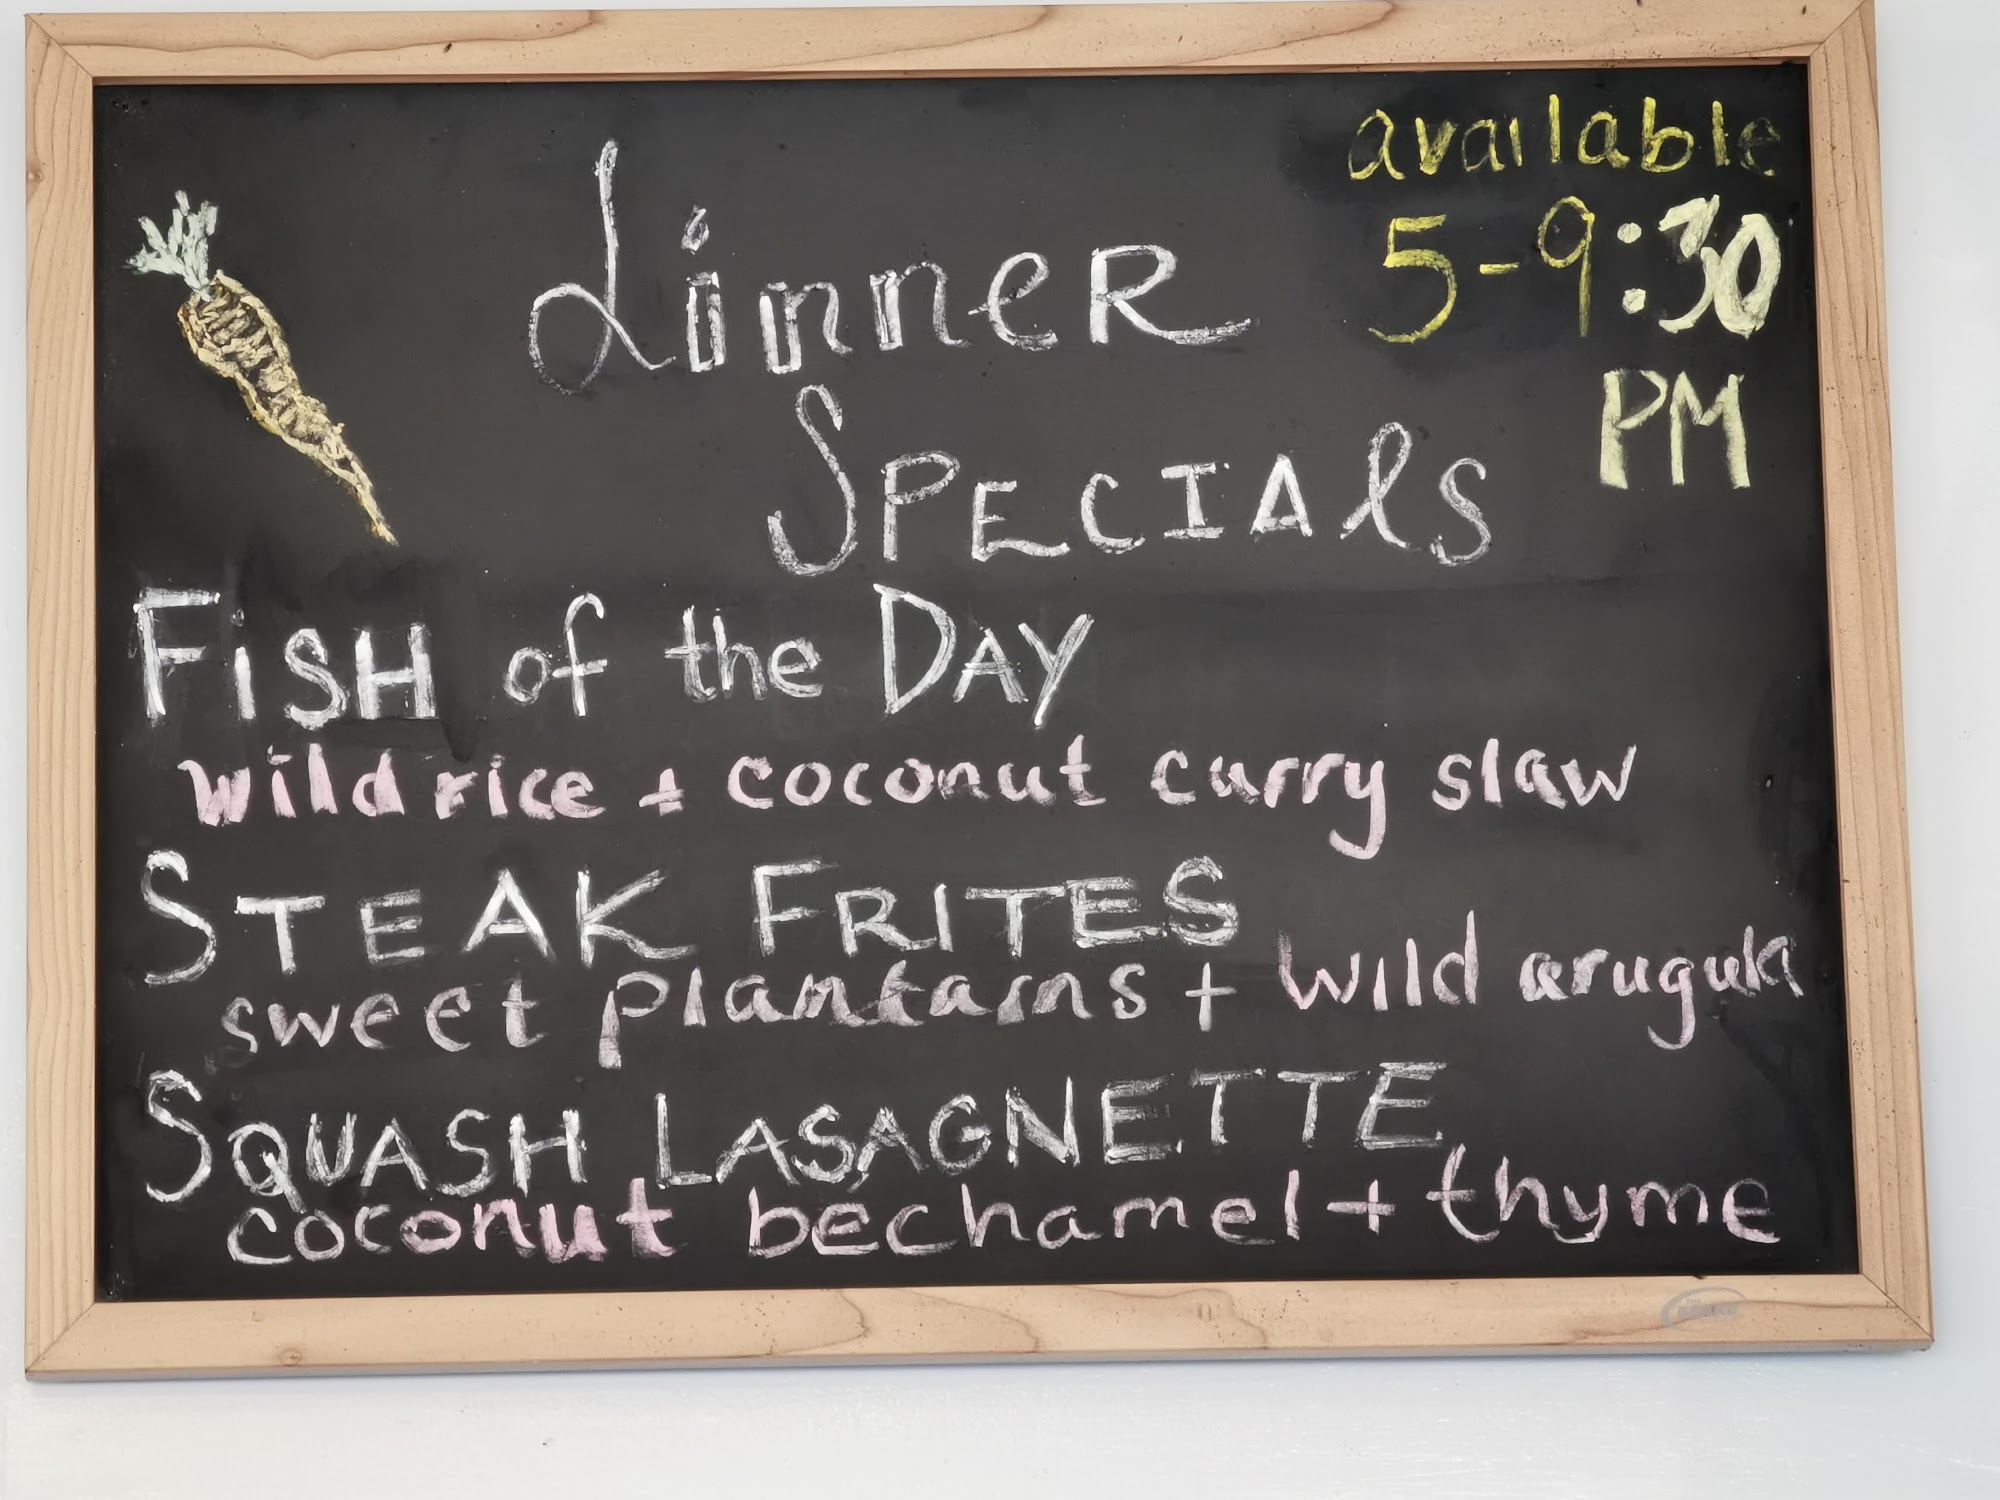 dinner
SPECIAls
available
5-9:30
PM
FiSH of the DAY
wild rice + coconut curry slaw
STEAK FRITES
sweet plantains + wild arugula
SQUASH LASAGNETTE
coconut bechamel + thyme